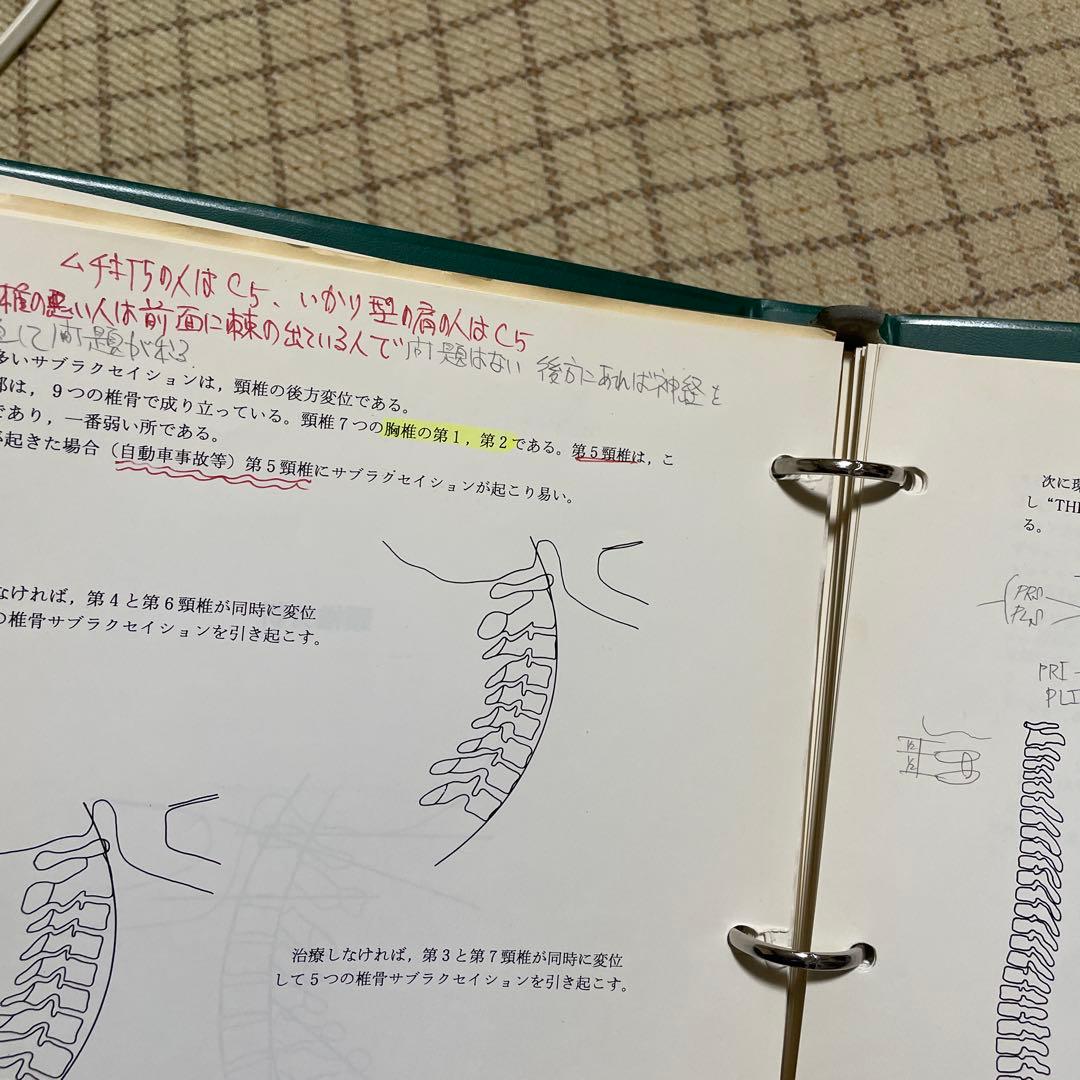 ムチ打ちの人はC5、いかり型の肩の人はC5
椎の悪い人は前面に棘の出ている人で問題はない 後方にあれば神経を
して問題が出る
多いサブラクセイションは，頸椎の後方変位である。
部は，９つの椎骨で成り立っている。頸椎７つの胸椎の第１，第２である。第５頸椎は，こ
であり，一番弱い所である。
起きた場合（自動車事故等）第５頸椎にサブラクセイションが起こり易い。
なければ，第４と第６頸椎が同時に変位
の椎骨サブラクセイションを引き起こす。
治療しなければ，第３と第７頸椎が同時に変位
して５つの椎骨サブラクセイションを引き起こす。
次に現
し“THE
る。
PRS
PLS
PRI
PLI
1/2
1/2